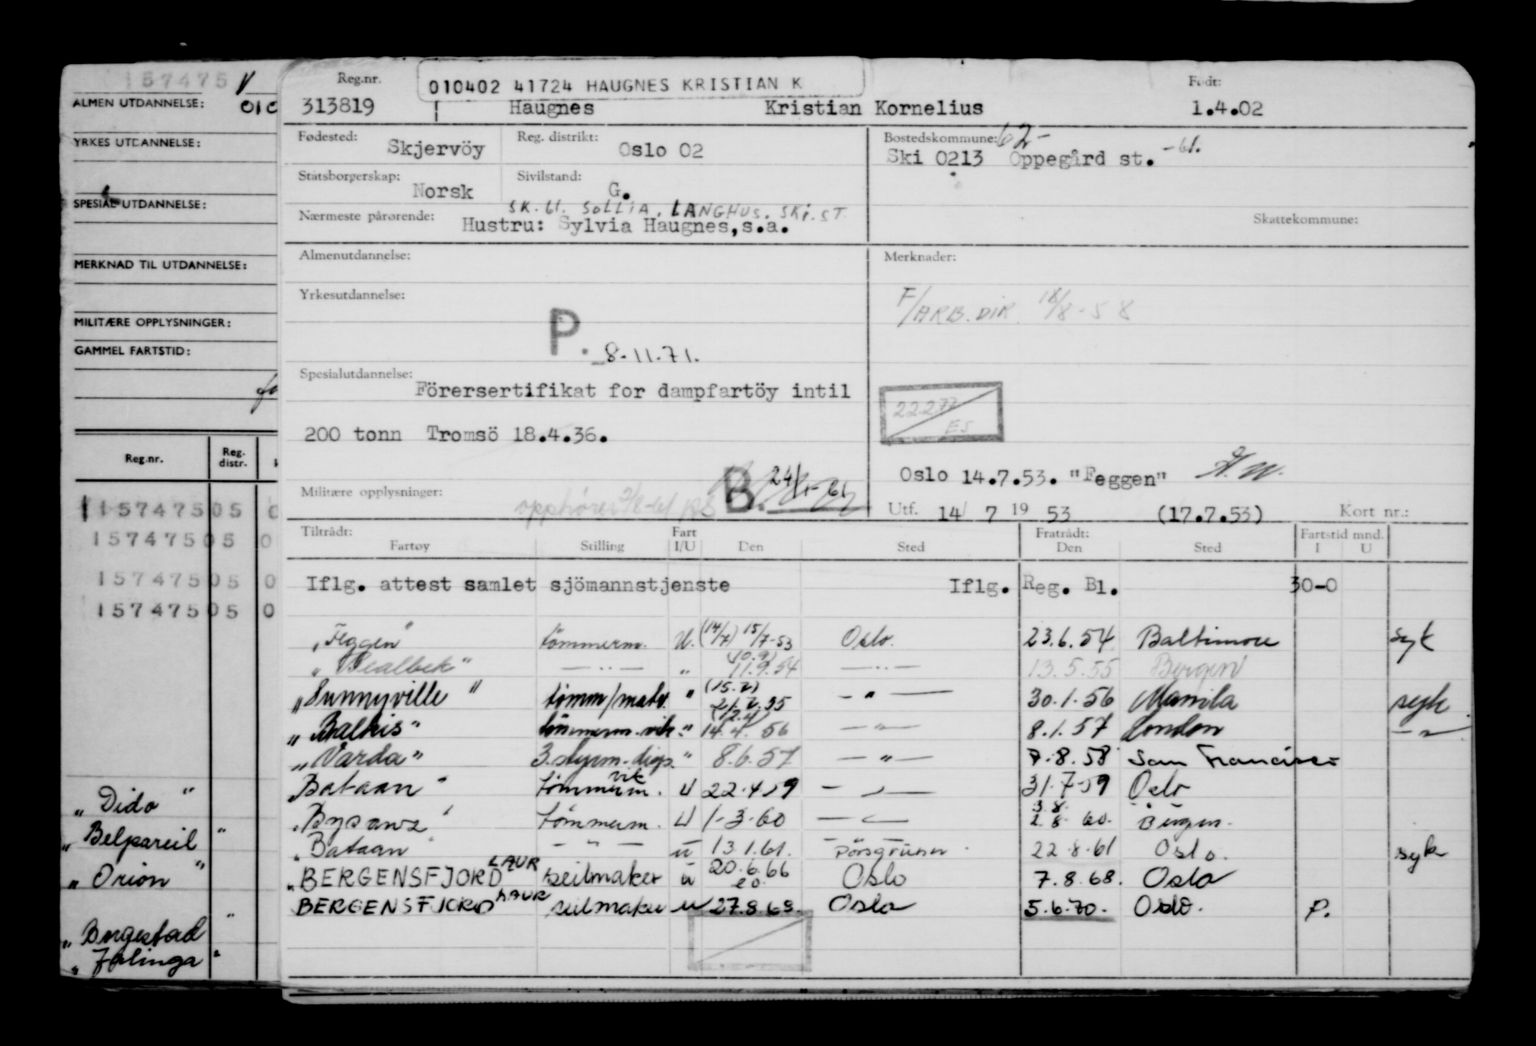 157475 V
ALMEN UTDANNELSE: 010
YRKES UTDANNELSE:
SPESIAL UTDANNELSE:
MERKNAD TIL UTDANNELSE:
MILITÆRE OPPLYSNINGER:
GAMMEL FARTSTID:
Reg.nr. Reg. distr.
1157475 05 0
157475 05 0
157475 05 0
157475 05 0
"Dido"
"Belpareil"
"Orion"
"Borgestad"
"Jalinga"
010402 41724 HAUGNES KRISTIAN K
Reg.nr. Født:
313819 Haugnes Kristian Kornelius 1.4.02
Fødested: Skjervöy Reg. distrikt: Oslo 02 Bostedskommune: 62-
Ski 0213 Oppegård st. -61.
Statsborgerskap: Norsk Sivilstand: G.
SK. 61. SOLLIA, LANGHUS. SKI. ST.
Nærmeste pårørende: Hustru: Sylvia Haugnes,s.a. Skattekommune:
Almenutdannelse: Merknader:
Yrkesutdannelse: F/ARB.DIR. 18/8-58
P. 8.11.71.
Spesialutdannelse: Förersertifikat for dampfartöy intil
22.2.77 ES
200 tonn Tromsö 18.4.36.
Oslo 14.7.53. "Feggen"
Militære opplysninger: opphører B. 24/1-61
Utf. 14/ 7 19 53 (17.7.53) Kort nr.:
Tiltrådt: Fartøy Stilling Fart I/U Den Sted Fratrådt: Den Sted Fartstid mnd. I U
Iflg. attest samlet sjömannstjenste Iflg. Reg. Bl. 30-0
"Feggen" tömmerm. U. (14/7) 15/7-53 Oslo. 23.6.54 Baltimore syk
" -"- " (10.9) 11.9.54 -"- 13.5.55 Bergen
"Sunnyville" tömm/matr. " (15.7) 21.7.55 -"- 30.1.56 Manila syk
"Balkis" tömmerm. vik. " (12.4) 14.4.56 -"- 8.1.57 London -"-
"Varda" 3.styrm.-disp. " 8.6.57 -"- 7.8.58 San Francisco
"Bataan" tömmerm. vik U 22.4.59 -"- 31.7.59 Oslo
"Bysanz" tömmerm. U 1-3-60 -"- 3.8. 2.8.60. Bergen.
"Bataan" -"- U 13.1.61. Porsgrunn. 22.8.61 Oslo. syk
"BERGENSFJORD" LAUR seilmaker u 20.6.66 Oslo 7.8.68. Oslo
BERGENSFJORD LAUR seilmaker u 20. 27.8.68. Oslo 5.6.70. Oslo. P.